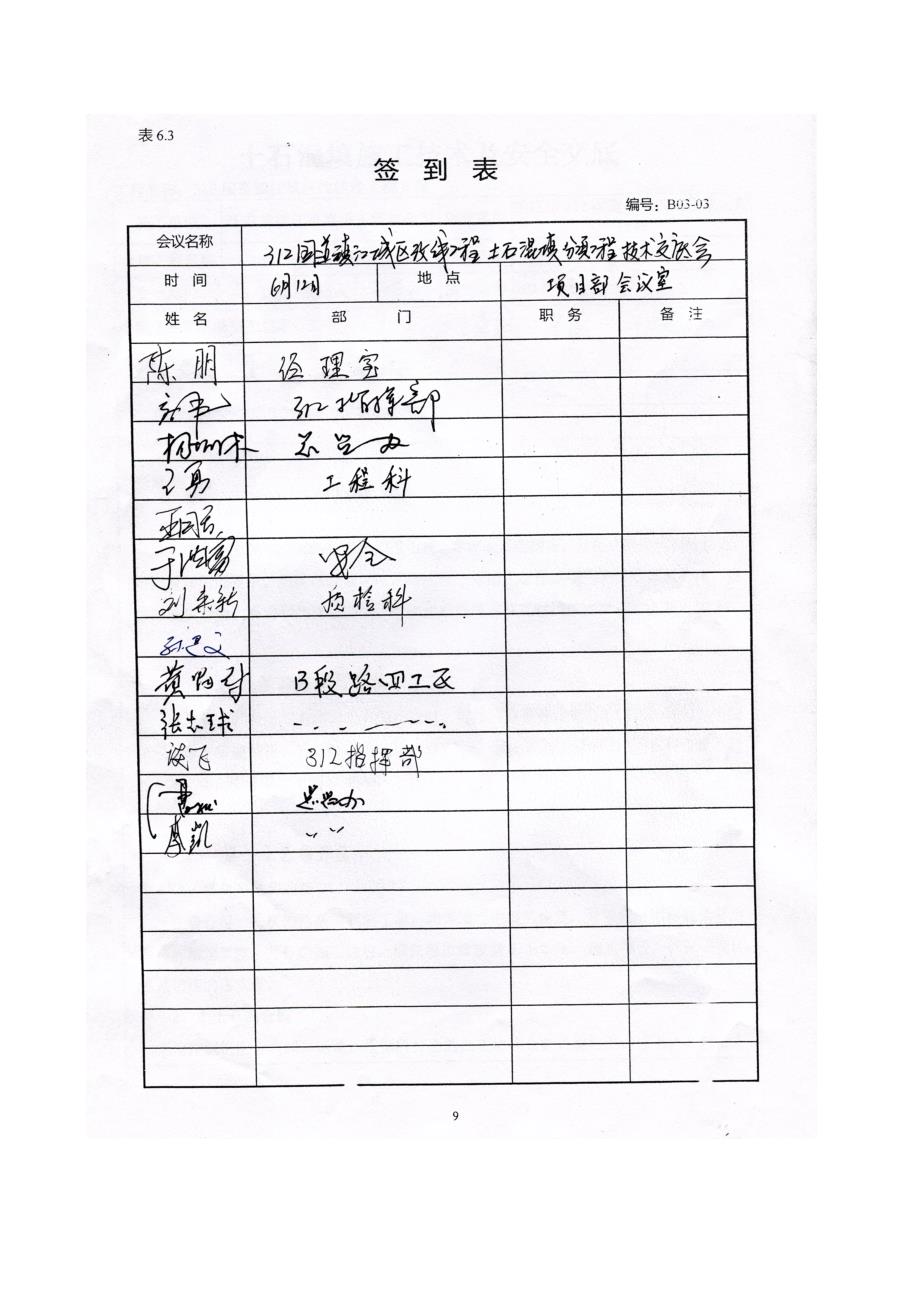 表6.3
签 到 表
编号：B03-03
会议名称 312国道镇江城区改线工程土石混填分项工程技术交底会
时 间 6月12日 地 点 项目部会议室
姓 名 部 门 职 务 备 注
陈 朋 经理室
312指挥部
总监办
王勇 工程科
安全
刘来新 质检科
孙建文
黄 B段路四工区
张志球
谈飞 312指挥部
总监办
李凯 〃 〃
9